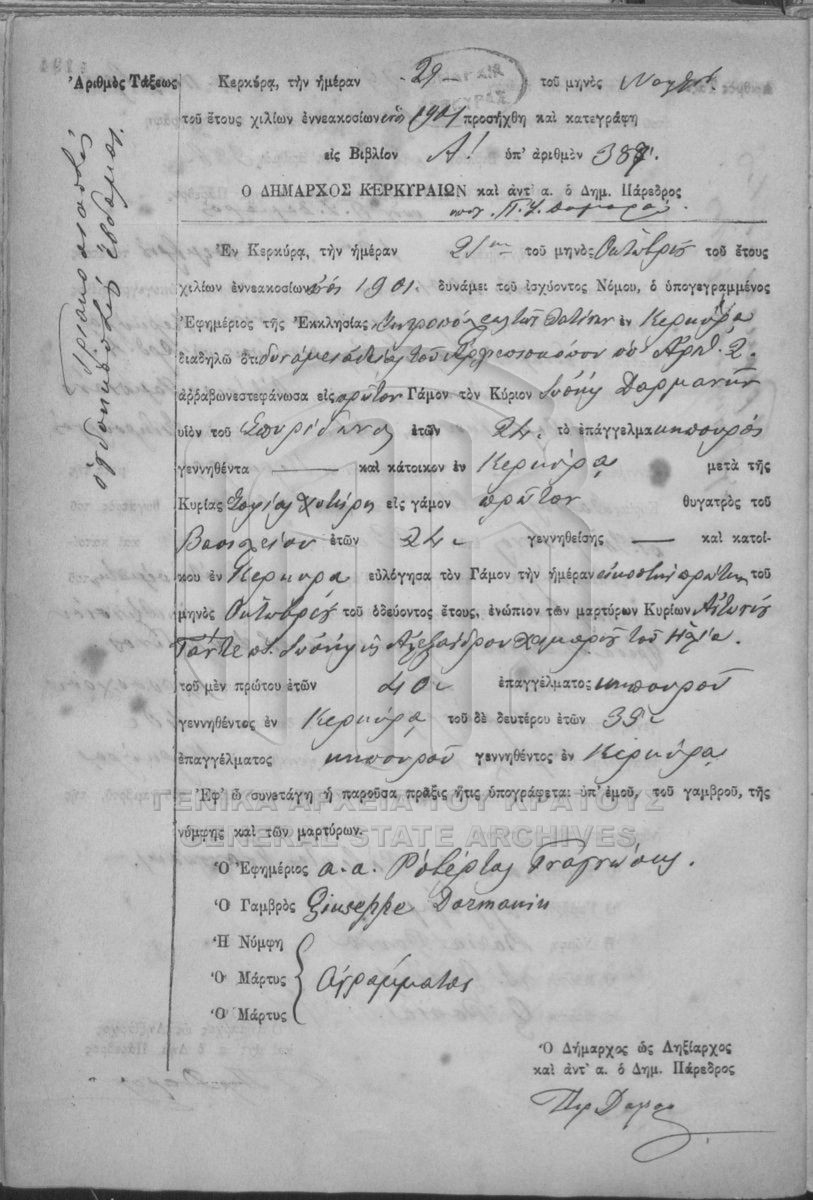 Ἀριθμὸς Τάξεως
τριακοσιοστὸς
ὀγδοηκοστὸς ἕβδομος.
Κερκύρᾳ, τὴν ἡμέραν 29 τοῦ μηνὸς Νοεμβρ.
τοῦ ἔτους χιλίων ἐννεακοσίων ἑνὸς 1901 προσήχθη καὶ κατεγράφη
εἰς Βιβλίον Α! ὑπ' ἀριθμὸν 387.
Ο ΔΗΜΑΡΧΟΣ ΚΕΡΚΥΡΑΙΩΝ καὶ ἀντ' α. ὁ Δημ. Πάρεδρος
Ἐν Κερκύρᾳ, τὴν ἡμέραν 21ην τοῦ μηνὸς Ὀκτωβρίου τοῦ ἔτους
χιλίων ἐννεακοσίων ἑνὸς 1901. δυνάμει τοῦ ἰσχύοντος Νόμου, ὁ ὑπογεγραμμένος
Ἐφημέριος τῆς Ἐκκλησίας Μητροπόλεως τῶν Λατίνων ἐν Κερκύρᾳ
διαδηλῶ ὅτι δυνάμει ἀδείας τοῦ Ἀρχιεπισκόπου ὑπ' Ἀριθ. 2.
ἀρραβωνεστεφάνωσα εἰς πρῶτον Γάμον τὸν Κύριον Ἰωσὴφ Δαρμανὴν
υἱὸν τοῦ Σπυρίδωνος ἐτῶν 24. τὸ ἐπάγγελμα κηπουρὸς
γεννηθέντα — καὶ κάτοικον ἐν Κερκύρᾳ μετὰ τῆς
Κυρίας Σοφίας εἰς γάμον πρῶτον θυγατρὸς τοῦ
Βασιλείου ἐτῶν 24 γεννηθείσης — καὶ κατοί-
κου ἐν Κερκύρᾳ εὐλόγησα τὸν Γάμον τὴν ἡμέραν εἰκοστὴν πρώτην τοῦ
μηνὸς Ὀκτωβρίου τοῦ ὁδεύοντος ἔτους, ἐνώπιον τῶν μαρτύρων Κυρίων Ἀντωνίου
Ἰωσὴφ Ἀλεξάνδρου τοῦ Ἠλία.
τοῦ μὲν πρώτου ἐτῶν 40 ἐπαγγέλματος κηπουροῦ
γεννηθέντος ἐν Κερκύρᾳ τοῦ δὲ δευτέρου ἐτῶν 35
ἐπαγγέλματος κηπουροῦ γεννηθέντος ἐν Κερκύρᾳ
Ἐφ' ᾧ συνετάγη ἡ παροῦσα πρᾶξις ἥτις ὑπογράφεται ὑπ' ἐμοῦ, τοῦ γαμβροῦ, τῆς
νύμφης καὶ τῶν μαρτύρων.
ΓΕΝΙΚΑ ΑΡΧΕΙΑ ΤΟΥ ΚΡΑΤΟΥΣ
GENERAL STATE ARCHIVES
Ὁ Ἐφημέριος α.α. Ῥοβέρτος
Ὁ Γαμβρὸς Giuseppe Darmanin
Ἡ Νύμφη
Ὁ Μάρτυς ἀγράμματος
Ὁ Μάρτυς
Ὁ Δήμαρχος ὡς Ληξίαρχος
καὶ ἀντ' α. ὁ Δημ. Πάρεδρος